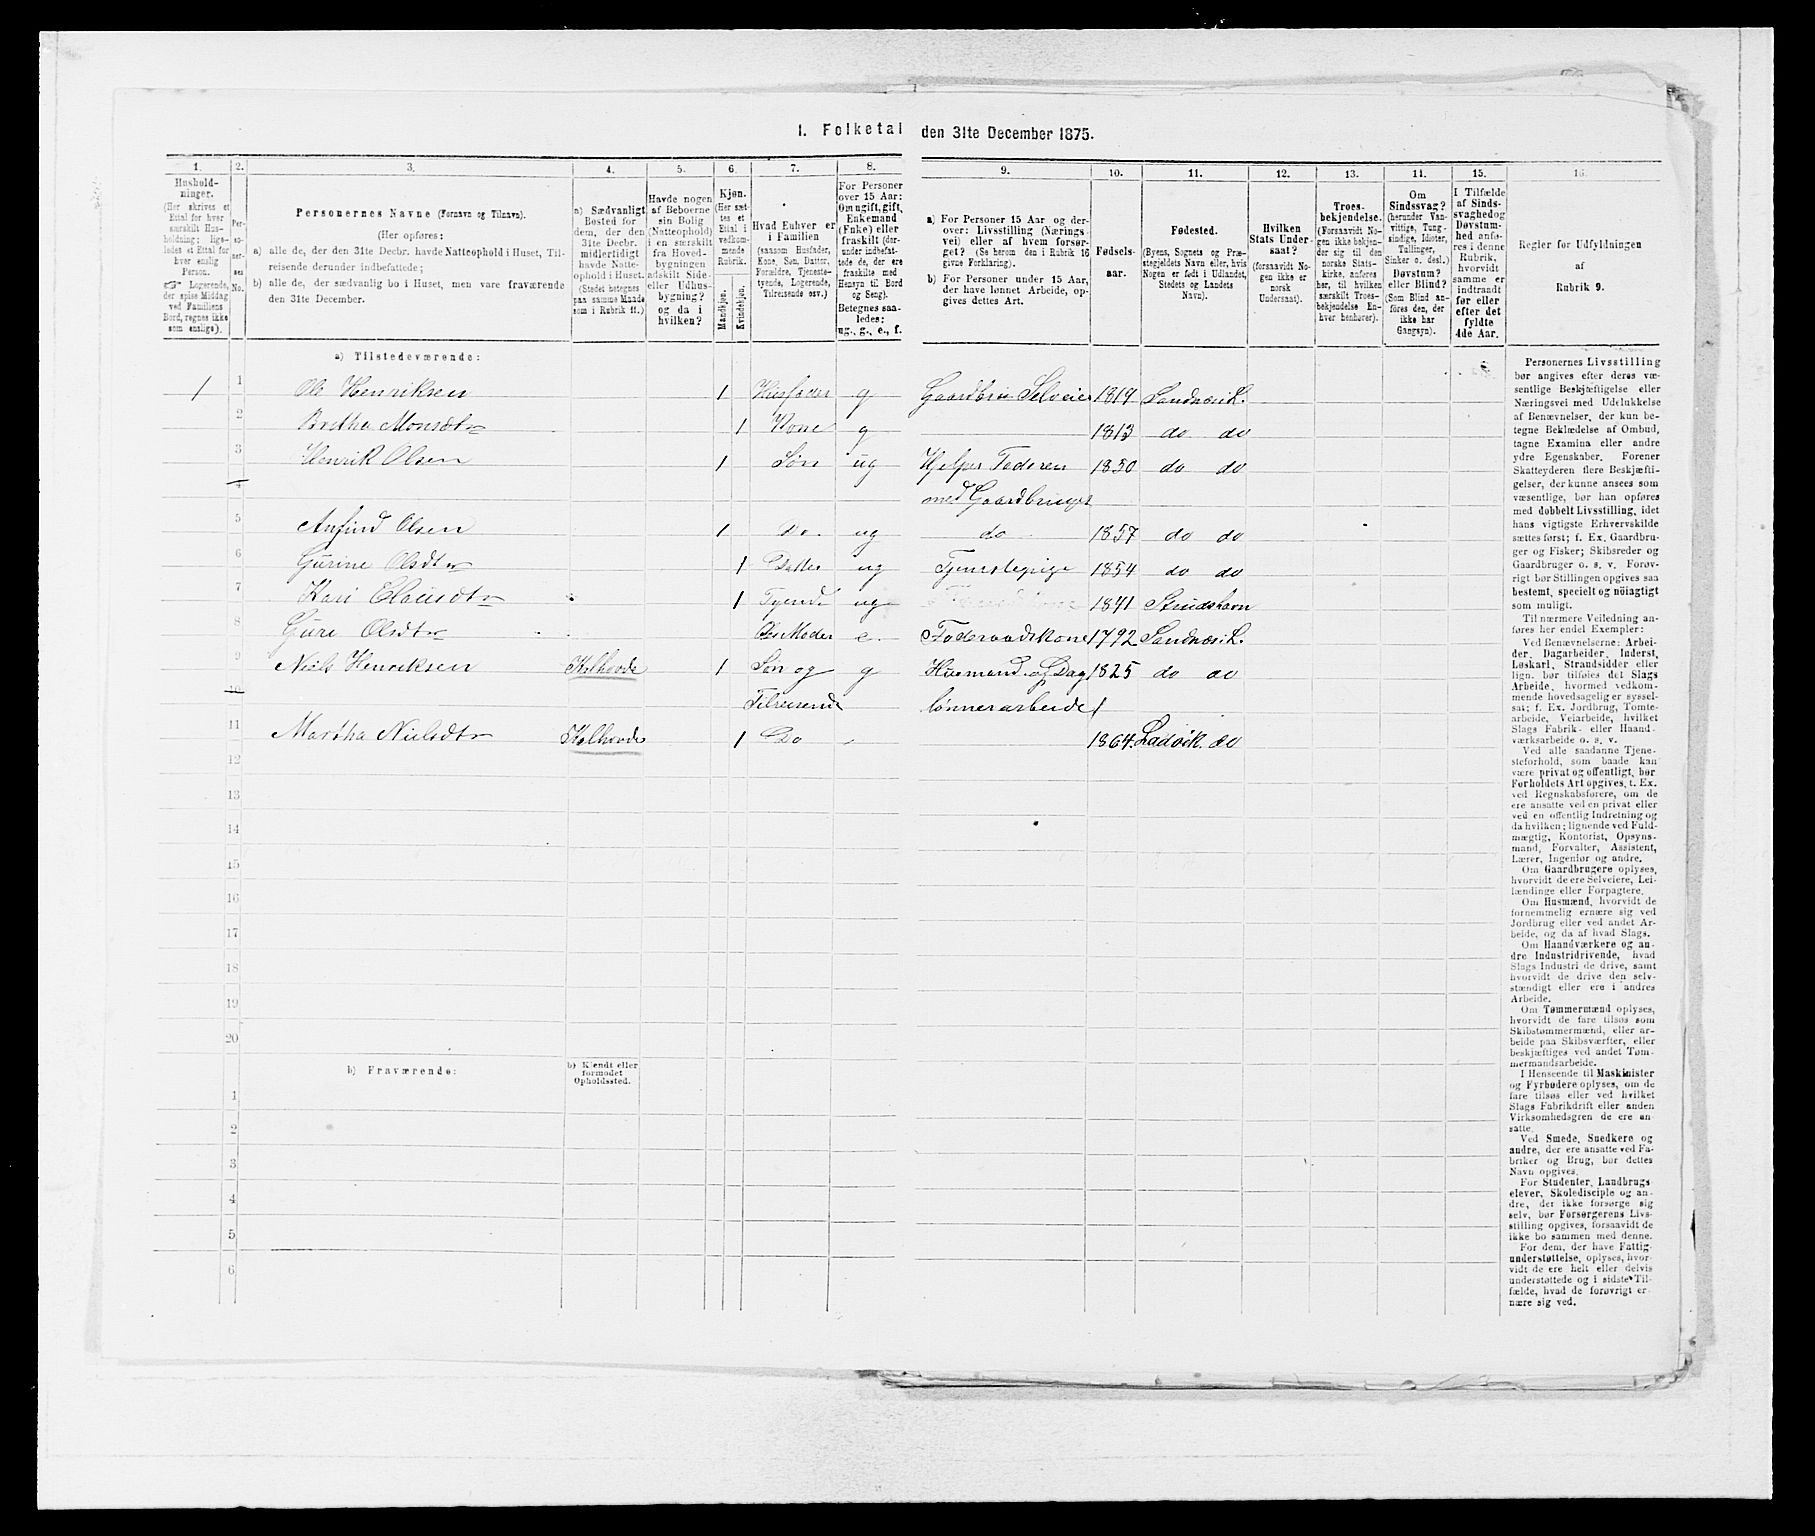 1. Folketal den 31te December 1875.
1. 2. 3. 4. 5. 6. 7. 8. 9. 10. 11. 12. 13. 11. 15. 16.
Hushold-
ninger.
(Her skrives et
Ettal for hver
særskilt Hus-
holdning; lige-
ledes et Ettal for
hver enslig
Person.
Logerende,
der spise Middag
ved Familiens
Bord, regnes ikke
som enslige).
Per-
so-
ner-
nes
No.
Personernes Navne (Fornavn og Tilnavn).
(Her opføres:
a) alle de, der den 31te Decbr. havde Natteophold i Huset, Til-
reisende derunder indbefattede;
b) alle de, der sædvanlig bo i Huset, men vare fraværende
den 31te December.
a) Sædvanligt
Bosted for
dem, der den
31te Decbr.
midlertidigt
havde Natte-
ophold i Huset.
(Stedet betegnes
paa samme Maade
som i Rubrik 11.)
Havde nogen
af Beboerne
sin Bolig
(Natteophold)
i en særskilt
fra Hoved-
bygningen
adskilt Side-
eller Udhus-
bygning?
og da i
hvilken?
Kjøn.
(Her sæt-
tes et
Ettal i
vedkom-
mende
Rubrik.
Mandkjøn.
Kvindekjøn.
Hvad Enhver er
i Familien
(saasom Husfader,
Kone, Søn, Datter,
Forældre, Tjeneste-
tyende, Logerende,
Tilreisende osv.)
For Personer
over 15 Aar:
Om ugift, gift,
Enkemand
(Enke) eller
fraskilt (der-
under indbefat-
tede de, der ere
fraskilte med
Hensyn til Bord
og Seng).
Betegnes saa-
ledes:
ug., g., e., f.
a) For Personer 15 Aar og der-
over: Livsstilling (Nærings-
vei) eller af hvem forsør-
get? (Se herom den i Rubrik 16
givne Forklaring).
b) For Personer under 15 Aar,
der have lønnet Arbeide, op-
gives dettes Art.
Fødsels-
aar.
Fødested.
(Byens, Sognets og Præ-
stegjeldets Navn eller, hvis
Nogen er født i Udlandet,
Stedets og Landets
Navn).
Hvilken
Stats Under-
saat?
(forsaavidt No-
gen ikke er
norsk
Undersaat).
Troes-
bekjendelse.
(Forsaavidt No-
gen ikke bekjen-
der sig til den
norske Stats-
kirke, anføres
her, til hvilken
særskilt Troes-
bekjendelse En-
hver henhører).
Om
Sindssvag?
(herunder Van-
vittige, Tung-
sindige, Idioter,
Tullinger,
Sinker o. desl.)
Døvstum?
eller Blind?
(Som Blind an-
føres den, der
ikke har
Gangsyn).
I Tilfælde
af Sinds-
svaghed og
Døvstum-
hed anfø-
res i denne
Rubrik,
hvorvidt
samme er
indtraadt
før eller
efter det
fyldte
4de Aar.
Regler for Udfyldningen
af
Rubrik 9.
a) Tilstedeværende:
1 1 Ole Henriksen 1 Husfader g Gaardbru Selveier 1819 Sandnæs K.
2 Britha Monsdtr 1 Kone g 1813 do do
3 Henrik Olsen 1 Søn ug Hjelper Faderen 1850 do do
4 med Gaardbruget
5 Anfind Olsen 1 Do ug do 1857 do do
6 Gurine Olsdtr 1 Datter ug Tjenestepige 1854 do do
7 Kari Clausdtr 1 Tyende ug 1841
8 Guri Olsdtr Moder e. Føderaadskone 1792 Sandnæs K.
9 Niels Henriksen Kolhovde 1 Søn og g Husmand og Dag 1825 do do
10 Tilreisende lønnerarbeide
11 Martha Nielsdtr Kolhovde 1 Do 1864. Ladvik. do
12
13
14
15
16
17
18
19
20
b) Fraværende:
b) Kjendt eller
formodet
Opholdssted.
1
2
3
4
5
6
Personernes Livsstilling
bør angives efter deres væ-
sentlige Beskjæftigelse eller
Næringsvei med Udelukkelse
af Benævnelser, der kun be-
tegne Beklædelse af Ombud,
tagne Examina eller andre
ydre Egenskaber. Forener
Skatteyderen flere Beskjæfti-
gelser, der kunne ansees som
væsentlige, bør han opføres
med dobbelt Livsstilling, idet
hans vigtigste Erhvervskilde
sættes først; f. Ex. Gaardbru-
ger og Fisker; Skibsreder og
Gaardbruger o. s. v. Forøv-
rigt bør Stillingen opgives saa
bestemt, specielt og nøiagtigt
som muligt.
Til nærmere Veiledning an-
føres her endel Exempler:
Ved Benævnelserne: Arbei-
der, Dagarbeider, Inderst,
Løskarl, Strandsidder eller
lign. bør tilføies det Slags
Arbeide, hvormed vedkom-
mende hovedsagelig er syssel-
sat; f. Ex. Jordbrug, Tomte-
arbeide, Veiarbeide, hvilket
Slags Fabrik- eller Haand-
værksarbeide o. s. v.
Ved alle saadanne Tjene-
steforhold, som baade kan
være privat og offentligt, bør
Forholdets Art opgives, t. Ex.
ved Regnskabsførere, om de
ere ansatte ved en privat eller
ved en offentlig Indretning og
da hvilken; lignende ved Fuld-
mægtig, Kontorist, Opsyns-
mand, Forvalter, Assistent,
Lærer, Ingeniør og andre.
Om Gaardbrugere oplyses,
hvorvidt de ere Selveiere, Lei-
lændinge eller Forpagtere.
Om Husmænd, hvorvidt de
fornemmelig ernære sig ved
Jordbrug eller ved andet Ar-
beide, og da af hvad Slags.
Om Haandværkere og an-
dre Industridrivende, hvad
Slags Industri de drive, samt
hvorvidt de drive den selv-
stændigt eller ere i andres
Arbeide.
Om Tømmermænd oplyses,
hvorvidt de fare tilsøs som
Skibstømmermænd, eller ar-
beide paa Skibsværfter, eller
beskjæftiges ved andet Tøm-
mermandsarbeide.
I Henseende til Maskinister
og Fyrbødere oplyses, om de
fare tilsøs eller ved hvilket
Slags Fabrikdrift eller anden
Virksomhedsgren de ere an-
satte.
Ved Smede, Snedkere og
andre, der ere ansatte ved Fa-
briker og Brug, bør dettes
Navn opgives.
For Studenter, Landbrugs-
elever, Skoledisciple og an-
dre, der ikke forsørge sig
selv, bør Forsørgerens Livs-
stilling opgives, forsaavidt de
ikke bo sammen med denne.
For dem, der have Fattig-
understøttelse, oplyses, hvor-
vidt de ere helt eller delvis
understøttede og i sidste Til-
fælde, hvad de forøvrigt er-
nære sig ved.